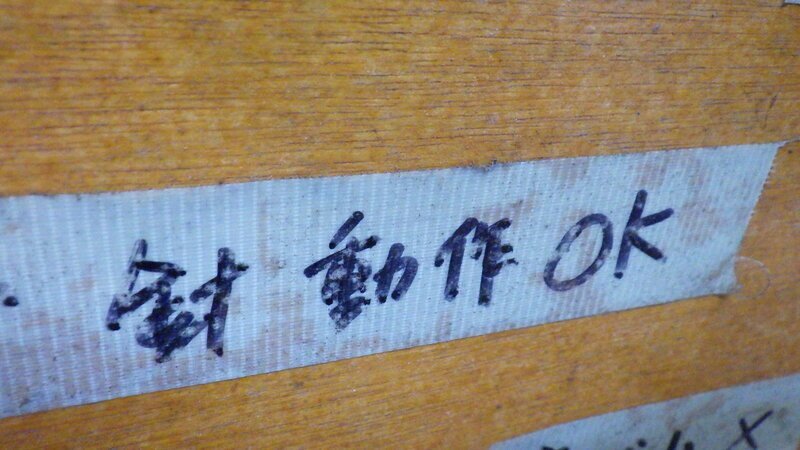 針 動作 OK
X